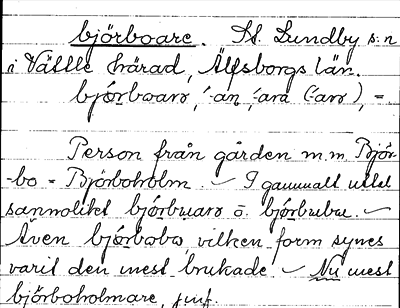 björboare. St. Lundby s:n
i Vättle härad, Älfsborgs län.
björboarə, -an, -ara (-arə), =
Person från gården m.m. Björ-
-bo = Björboholm. – I gammalt uttal
sannolikt björbuarə o. björbubu. –
Även björbobə, vilken form synes
varit den mest brukade. – Nu mest
björboholmare, jmf.